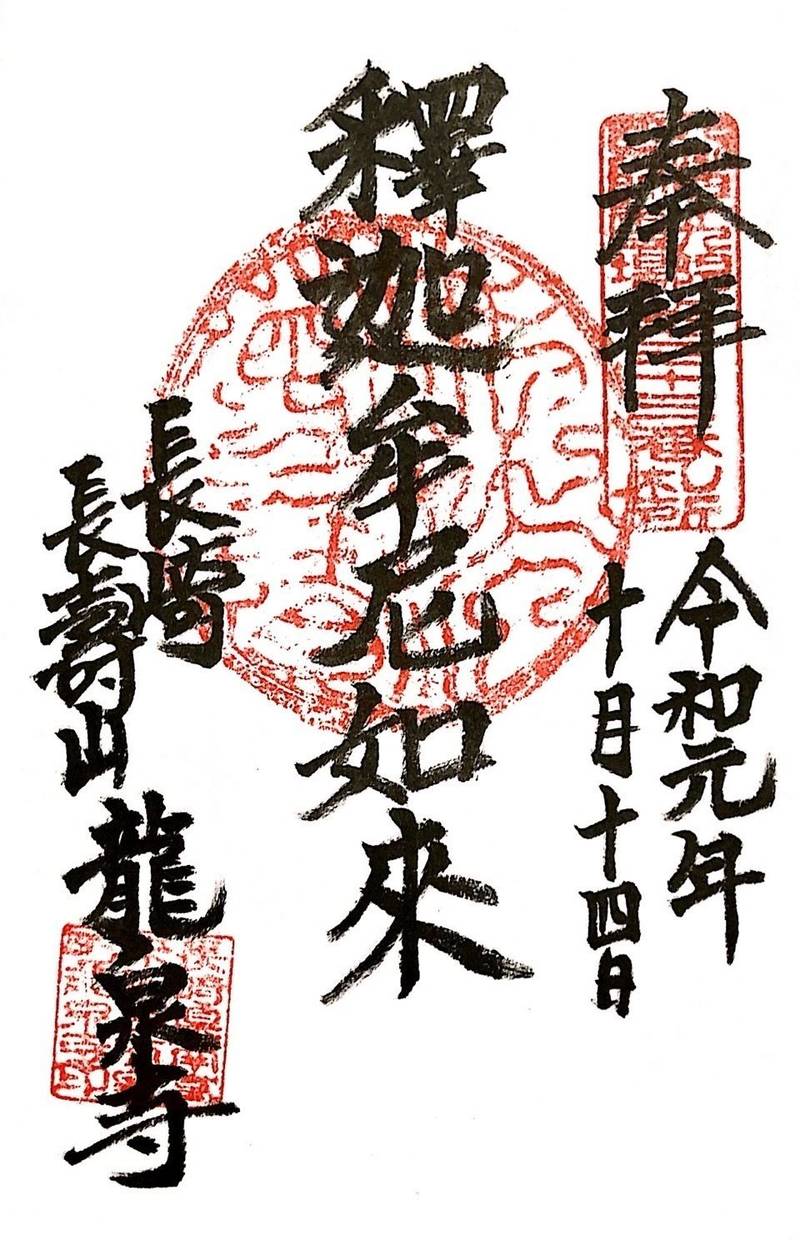 奉拜
令和元年
十月十四日
釋迦牟尼如來
長崎
長壽山
龍泉寺